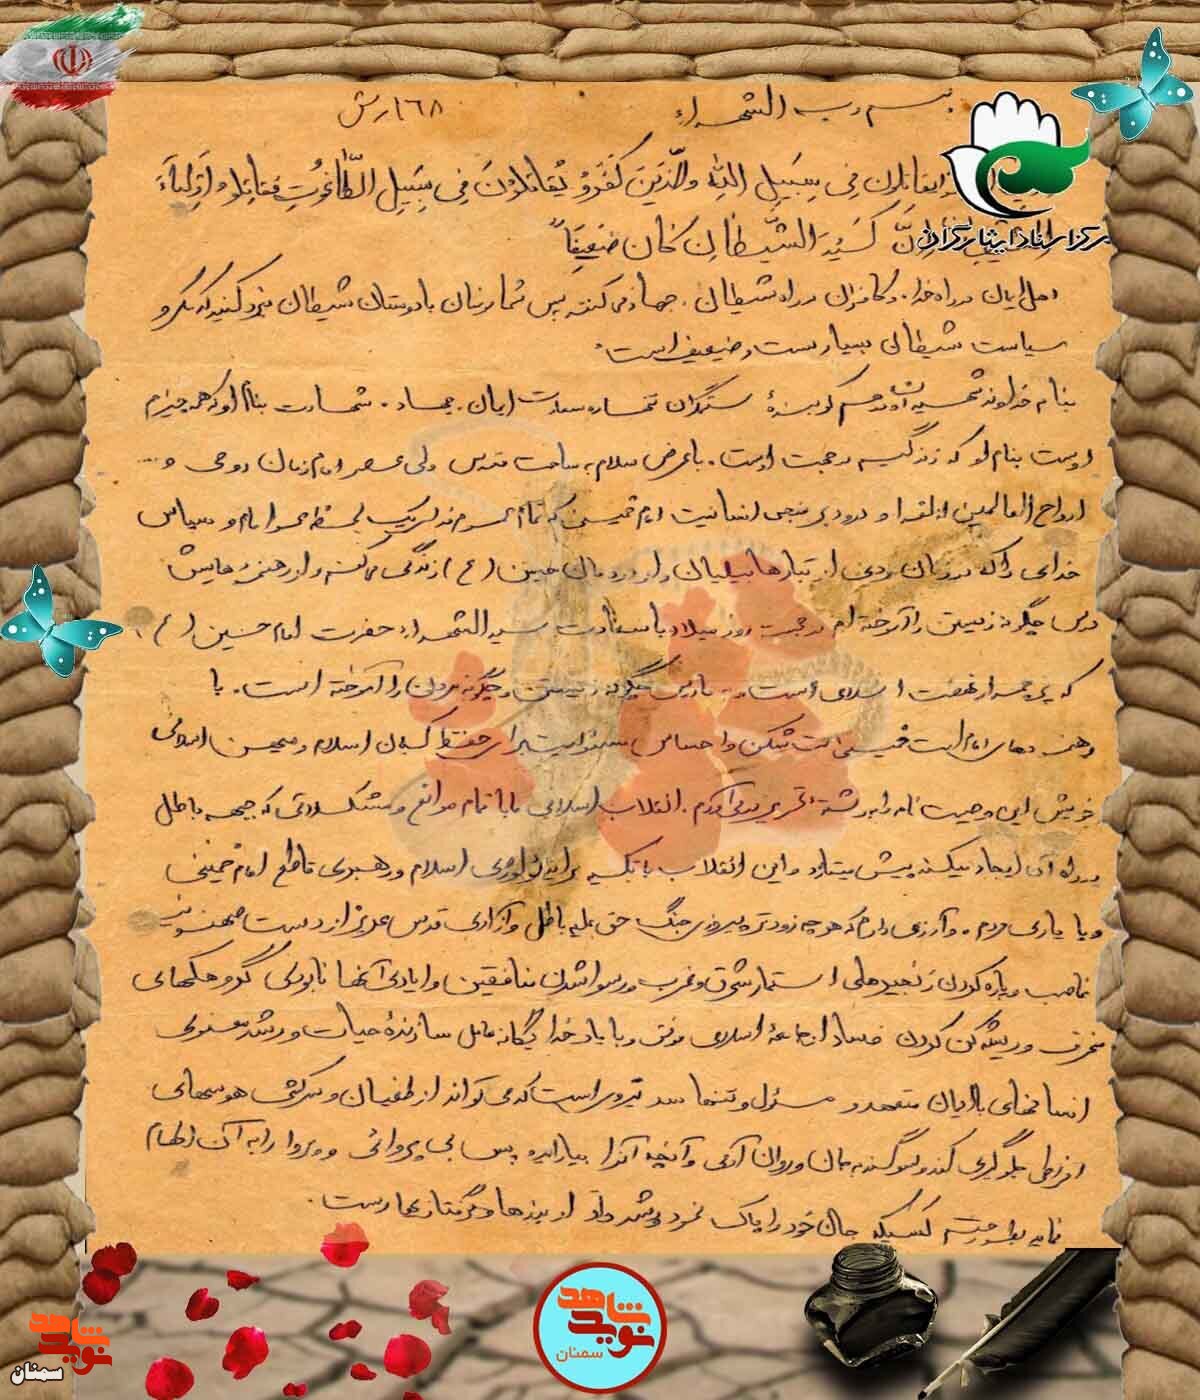 بسم رب الشهداء
مرکز اسناد ایثارگران
یقاتلون فی سَبیلِ اللهِ والَّذینَ کَفَروُ یُقاتلِوُنَ فی سَبیلِ الطّاغوُتِ فقاتِلوا اَوْلیاءَ
اِنَّ کَیْدَ الشَّیطانِ کان ضَعیفاً
اهل ایمان در راه خدا و کافران در راه شیطان جهاد می کنند پس شما مومنان با دوستان شیطان نبرد کنید که مکر و
سیاست شیطان بسیار سست و ضعیف است.
بنام خداوند درهم کوبندهٔ ستمگران ایمان. جهاد. شهادت بنام او که همه چیزم
اوست بنام او که زندگیم در جهت اوست. با عرض سلام به ساحت مقدس ولی عصر امام زمان روحی و ...
ارواح العالمین له الفدا و درود بر منجی انسانیت امام خمینی که تمام عمرم فدای یک لحظه عمر امام و سپاس
خدای را که در زمان از تبار هابیلیان و از دودمان حسین (ع) زندگی می کنم و از رهنمودهایش
درس چگونه زیستن را آموخته ام در جهت روز میلاد با سعادت سید الشهداء حضرت امام حسین (ع)
که پرچمدار نهضت اسلامی است و به ما درس چگونه زیستن و چگونه مردن را آموخته است. با
رهنمودهای امام امت خمینی بت شکن و احساس مسئولیت برای حفظ کیان اسلام و میهن اسلامی
خویش این وصیت نامه را به رشته تحریر در می آورم. انقلاب اسلامی ما با تمام موانع و مشکلاتی که جبهه باطل
در راه آن ایجاد میکند پیش میتازد و این انقلاب با تکیه بر ایدئولوژی اسلام و رهبری قاطع امام خمینی
و با یاری مردم. و آرزوی دارم که هر چه زودتر پیروزی جنگ حق علیه باطل و آزادی قدس عزیز از دست صهیونیزم
غاصب و پاره کردن زنجیرهای استعمار شرق و غرب و رسوا شدن منافقین و ایادی آنها نابودی گروهکهای
منحرف و ریشه کن کردن فساد از جامعهٔ اسلامی موفق و با یاد خدا یگانه عامل سازندهٔ حیات و رشد معنوی
انسانهای با ایمان متعهد و مسئول و تنها سد نیرومند است که می تواند از طغیان و سرکشی هوسهای
افراطی جلوگیری کند و سوگند به جان و روان آدمی و آنچه آنرا بیاراید پس بی پروائی و پروا را به آن الهام
نماید کسیکه جان خود را پاک نمود
نوید شاهد
سمنان
نوید شاهد
سمنان